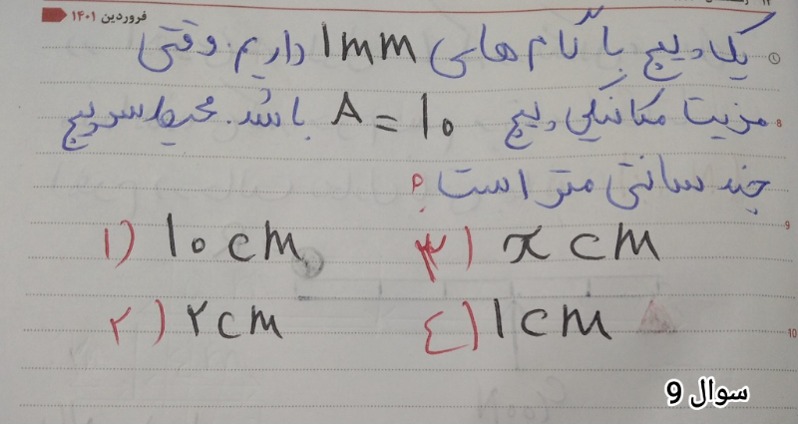 فروردین ۱۴۰۱
یک پیچ با گام های 1mm داریم. وقتی
مزیت مکانیکی پیچ A = ۱۰ باشد. محیط سر پیچ
8
چند سانتی متر است؟
9
۱) ۱۰ cm
۳) x cm
۲) ۲ cm
٤) ۱ cm
10
سوال 9